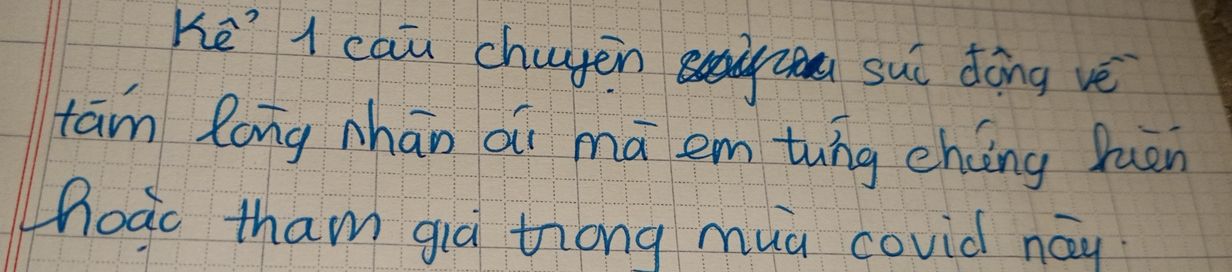 Kể 1 câu chuyện xúc động về
tấm lòng nhân ái mà em từng chứng kiến
hoặc tham gia trong mùa covid này.